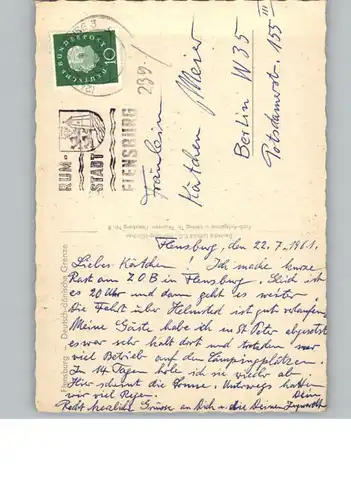 DEUTSCHE BUNDESPOST
10
RUM-
STADT
FLENSBURG
239
Fräulein
Kätchen Meier
Berlin W 35
Potsdamerstr. 155 III
Flensburg Deutsch-dänische Grenze
Flensburg, den 22.7.1961.
Liebes Kätchen! Ich mache kurze
Rast am Z O B in Flensburg. Jetzt ist
es 20 Uhr und dann geht es weiter
Die Fahrt über Helmsted ist gut verlaufen
Meine Gäste habe ich in St Peter abgesetzt
es war sehr kalt dort und trotzdem war
viel Betrieb auf den Campingplätzen.
In 14 Tagen hole ich sie wieder ab
Hier scheint die Sonne. Unterwegs hatten
wir viel Regen. Dein
Recht herzliche Grüsse an Dich u. die Deinen